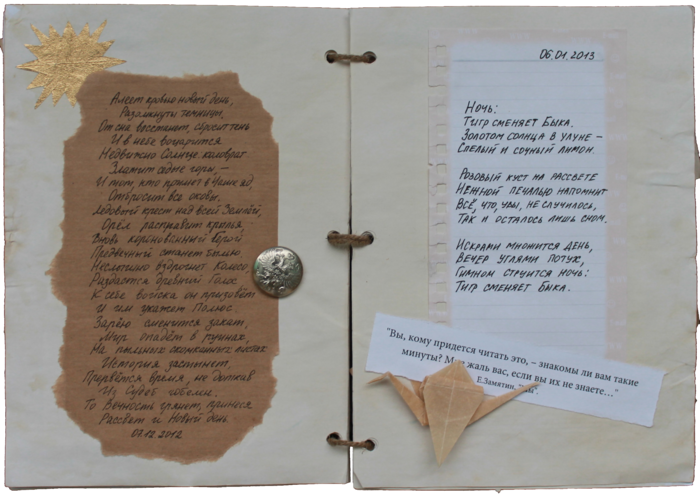 Алеет кровью новый день,
Разомкнуты темницы,
От сна восстанет, сбросит тень
И в небе воцарится
Недвижно Солнце: коловрат
Златит седые горы, –
И тот, кто прошёл в Чашу ад,
Отбросит все оковы.
Ледовый крест над всей Землёй,
Орёл расправит крылья.
Вновь коронованный Герой
Предвечный станет былью.
Неслышно вздрогнет Колесо,
Раздастся древний Голос
К себе войска он призовёт
и им укажет Полюс.
Зарёю сменится закат,
Мир опадёт в руинах,
На пыльных оконных
История застынет,
Прервётся время, не доткав
Из Судеб гобелен.
То Вечность грянет, принеся
Рассвет и Новый день.
07.12.2012
06.01.2013
Ночь:
Тигр сменяет Быка.
Золотом солнца в улуне –
Спелый и сочный лимон.
Розовый куст на рассвете
Нежной печалью напомнит
Всё, что, увы, не случилось,
Так и осталось лишь сном.
Искрами множится день,
Вечер углями потух,
Гимном струится ночь:
Тигр сменяет Быка.
"Вы, кому придется читать это, – знакомы ли вам такие
минуты? Мне жаль вас, если вы их не знаете…"
Е.Замятин, "Мы".